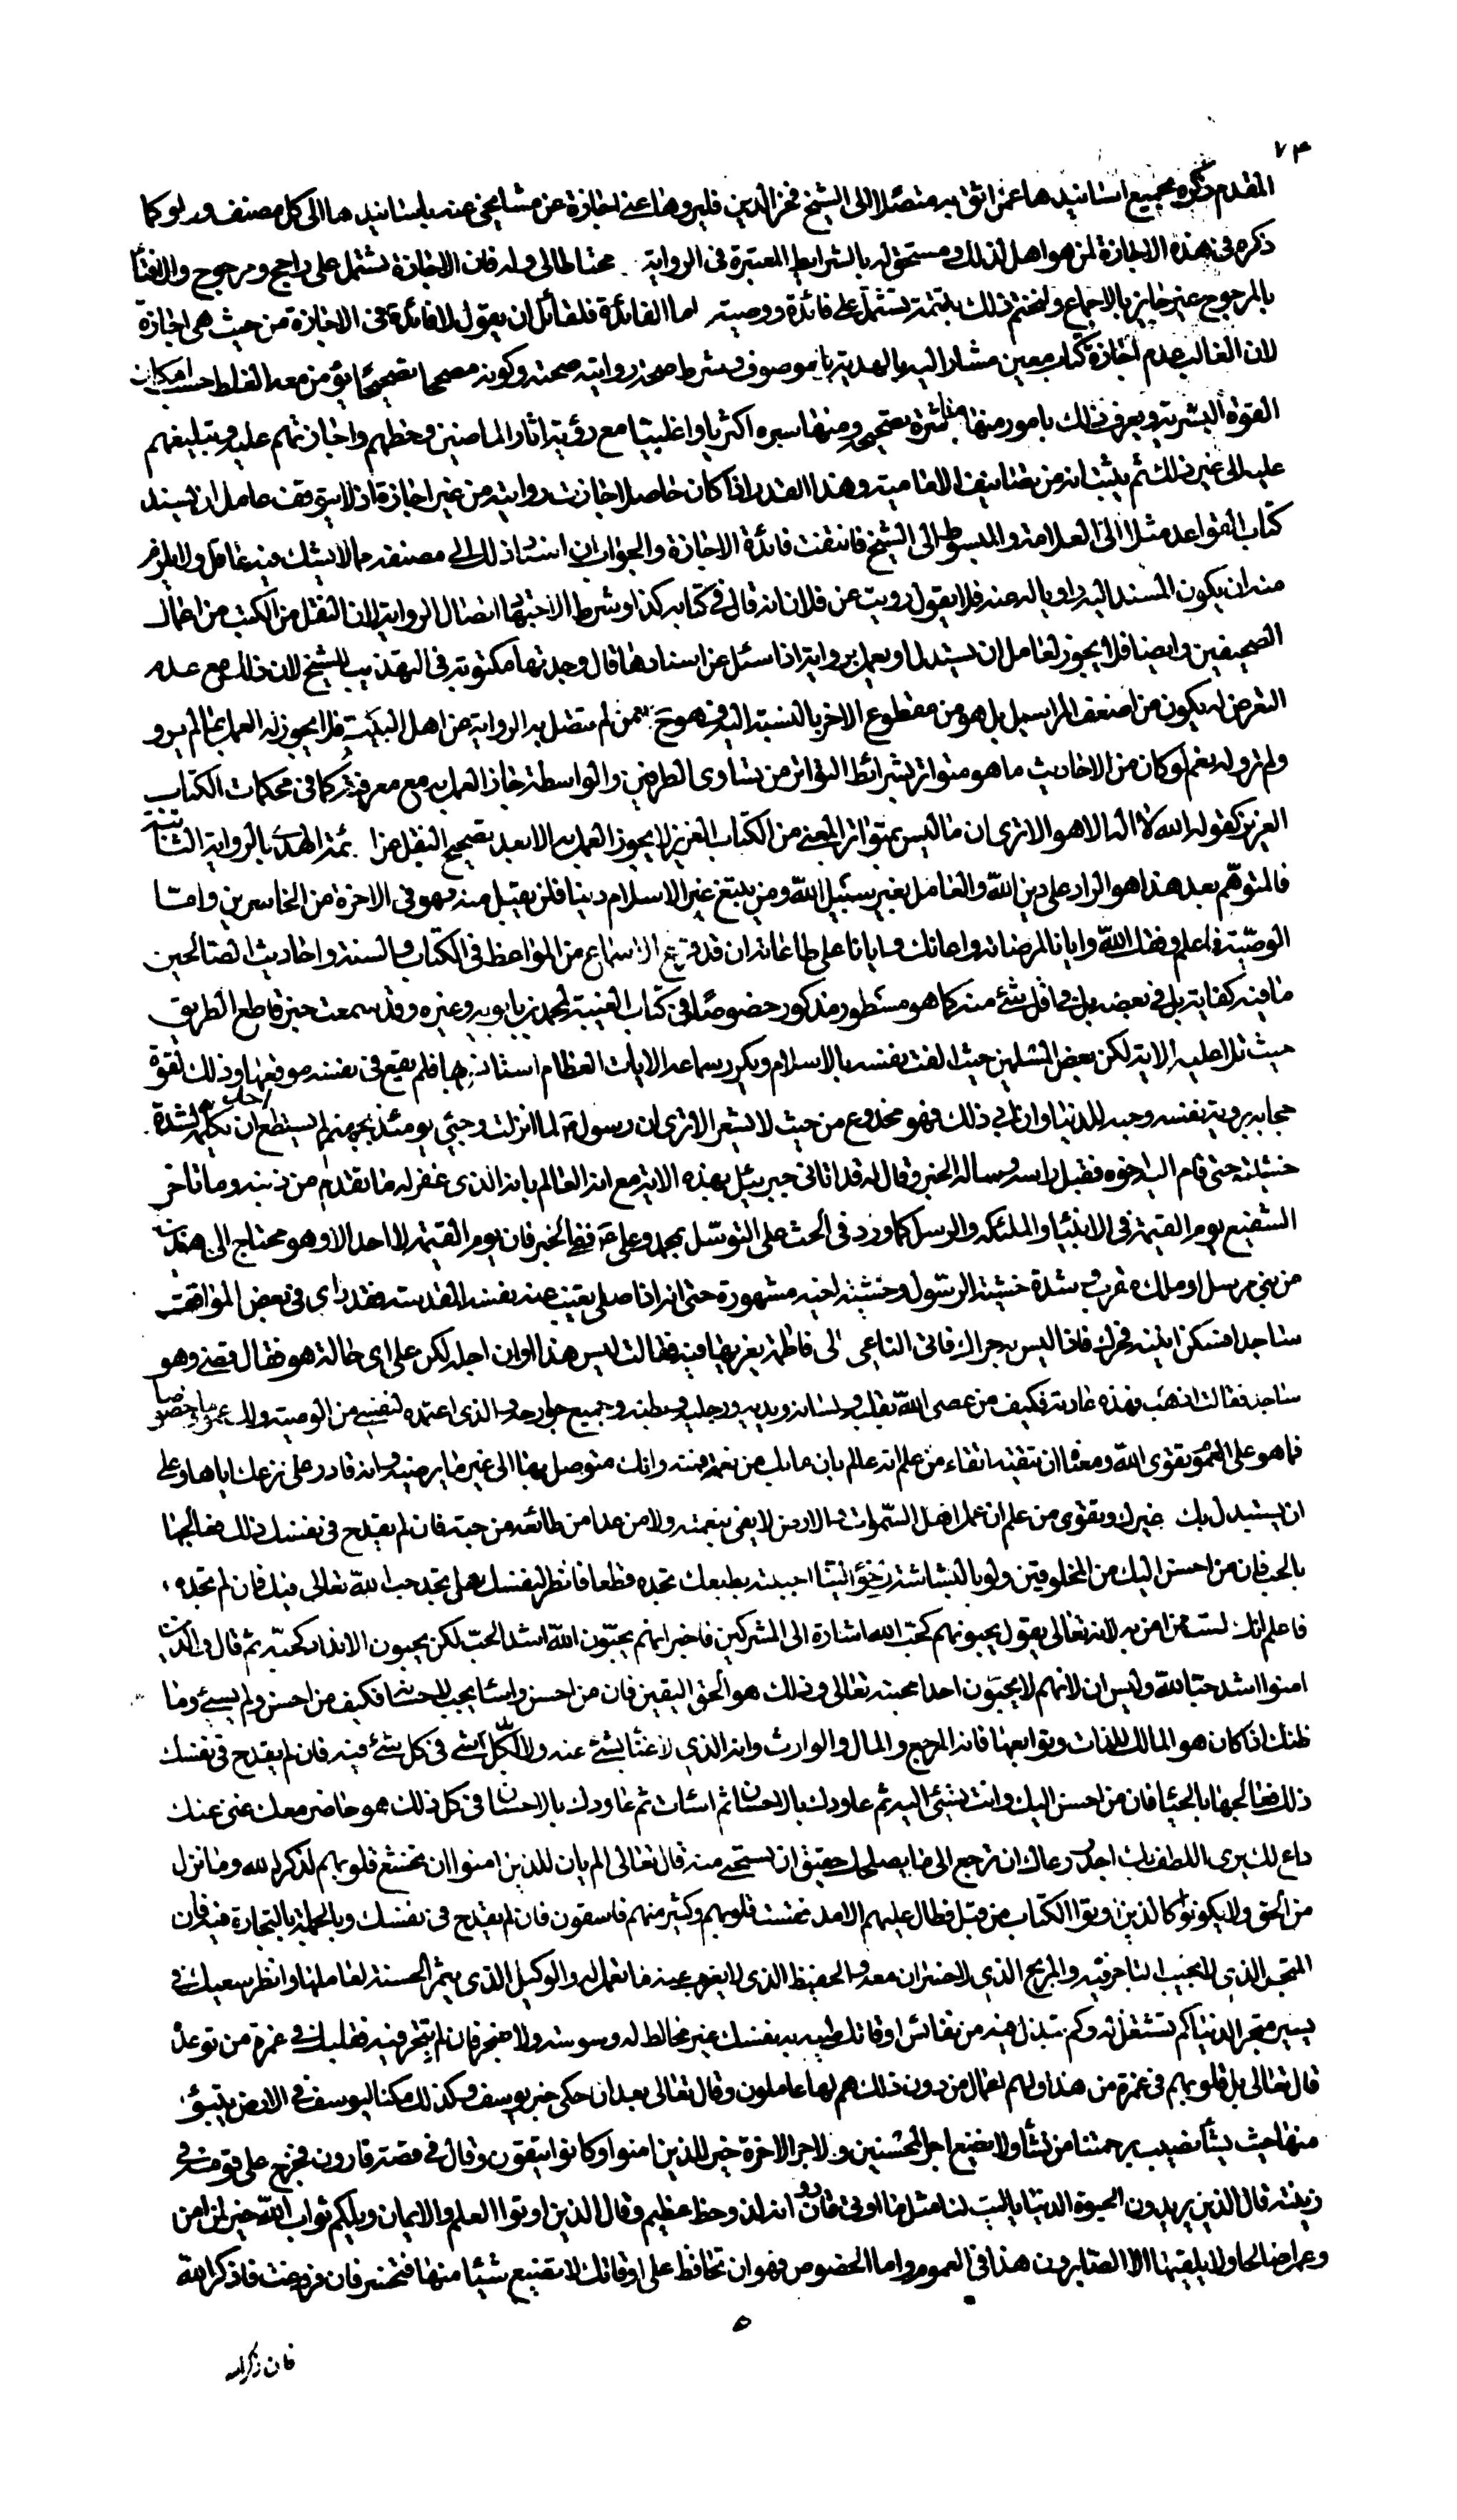 ٧٤
المقدم ذكره بجميع اسانيدها عمن اثق به متصلا الى الشيخ فخر الدين فليروها عنى اجازة عن مشايخى عنه باسانيدها الى كل مصنف ورا و كما
ذكره فى هذه الاجازة لمن هو اهل لذلك ومستحق له بالشرايط المعتبرة فى الرواية محتاطا لى وله فان الاجازة تشتمل على راجح ومرجوح والافتاء
بالمرجوح غير جايز بالاجماع ولنختم ذلك بتتمة تشتمل على فائدة ووصية اما الفائدة فلقائل ان يقول لا فائدة فى الاجازة من حيث هى اجازة
لان الغالب عدم اجازة كتاب معين مشار اليه بالهدية بل موصوف وشرط صحة روايته صحته وكونه مصححا تصحيحا يؤمن معه الغلط حسب امكان
القوة البشرية ويعرف ذلك بامور منها مباشرة تصحيحه ومنها سبره اكثريا واغلبيا مع رؤية اثار الماضين وخطهم واجازتهم عليه وتبليغهم
عليه الى غير ذلك ثم يثبت انه من تصانيف الامامية وهذا القدر اذا كان حاصلا جازت روايته من غير اجازة اذ لا يتوقف عامل ان يسند
كتاب القواعد مثلا الى العلامة والمبسوط الى الشيخ فانتفت فائدة الاجازة والجواب ان اسناد ذلك الى مصنفه مما لا يشك فيه عاقل ولا يلزم
منه ان يكون المسند اليه راويا له عنه فلا يقول رويت عن فلان انه قال فى كتابه كذا وشرط الاجتهاد اتصال الرواية لان النقل من الكتب من اعمال
الصحيفيين وايضا فلا يجوز لعامل ان يستدل او يعمل برواية اذا سئل عن اسنادها قال وجدتها مكتوبة فى التهذيب للشيخ لان ذلك مع عدم
التعرض له يكون من اضعف المراسيل بل هو من مقطوع الاخر بالنسبة اليه فهو ح ممن لم يتصل به الرواية من اهل البيت فلا يجوز له العمل بما لم يرو
ولم يروله نعم لو كان من الاحاديث ما هو متواتر بشرائط التواتر من تساوى الطرفين والواسطة جاز العمل به مع معرفته كما فى محكمات الكتاب
العزيز كقوله الله لا اله الا هو الا ترى ان ما ليس بمتواتر المعنى من الكتاب العزيز لا يجوز العمل به الا بعد تصحيح النقل من ائمة الهدى بالرواية الثابتة
فالمتوهم بعد هذا هو الراد على دين الله والعامل بغير سبيل الله ومن يبتغ غير الاسلام دينا فلن يقبل منه وهو فى الاخرة من الخاسرين واما
الوصية فاعلم وفقك الله وايانا لمرضاته واعانك وايانا على طاعاته ان قد قرع الاسماع من المواعظ فى الكتاب والسنة واحاديث الصالحين
ما فيه كفاية بل فى بعضه بل فى اقل شئ منه كما هو مسطور مذكور خصوصا فى كتاب الغيبة لمحمد بن بابويه وغيره وقد سمعت خبر قاطع الطريق
حيث تلا عليه الاية لكن بعض المسلمين حيث الفت نفسه بالاسلام وتكرر سماعه الايات العظام استانس بها فلم يقع فى نفسه موقعها وذلك لقوة
حجابه برؤية نفسه وحبه للدنيا وان ابى ذلك فهو مخدوع من حيث لا يشعر الا ترى ان رسول الله لما انزلت وجئ يومئذ بجهنم لم يستطع احد ان يكلمه لشدة
خشيته حتى قام اليه اخوه فقبل راسه وساله الخبر وقال له قد اتانى جبرئيل بهذه الاية مع انه العالم بانه الذى غفر له ما تقدم من ذنبه وما تاخر
الشفيع يوم القيمة فى الانبياء والملئكة والرسل كما ورد فى الحث على التوسل بمحمد وعلى ففى الخبر فان يوم القيمة لا احد الا وهو محتاج اليهما
من نبى مرسل او ملك مقرب وشدة خشية الرسول وخشية اخيه مشهورة حتى انه اذا صلى يغيب عنه نفسه المقدسة فقد راى فى بعض المواقف
ساجدا فسكن انينه فحرك فاذا ليس به حراك فاتى الناعى الى فاطمة يعزيها فيه فقالت ليس هذا اوان اجله لكن على اى حالة هو فقال قضى وهو
ساجد فقالت اذهب فهذه عادته فكيف من عصى الله بقلبه ولسانه ويديه ورجليه وبطنه وجميع جوارحه والذى اعتمده لنفسى من الوصية ولك عموما وخصوصا
فما هو على العموم تقوى الله ومعناه ان تتقيه اتقاء من علم انه عالم بان ما بك من نعمة فمنه وانك متوصل بها الى غير ما يرضيه وانه قادر على نزعك اياها وعلى
ان يستبدل بك غيرك وتقوى من علم ان عمل اهل السموات والارض لا يفى بنعمته ولا من عدا من طائعه من حبه فان لم يقدح فى نفسك ذلك فعالجها
بالحب فان من احسن اليك من المخلوقين ولو بالبشاشة احببته بطبعك تجده قطعا فانظر لنفسك هل تجد حب الله تعالى فيك فان لم تجده
فاعلم انك لست ممن امن به لانه تعالى يقول يحبونهم كحب الله اشارة الى المشركين فاخبر انهم يحبون الله اشد الحب لكن يحبون الانداد كحبه ثم قال والذين
امنوا اشد حبا لله وليس ان لانهم لا يحبون احدا محبته تعالى وذلك هو الحق اليقين فان من احسن واساء يحب للحسنا فكيف من احسن ولم يسئ وما
ظنك اذا كان هو المالك للذات وتوابعها فانه المرجع والمال والوارث وانه الذى لا غناء لشئ عنه ولا لكل شئ فى كل شئ فيه فان لم يقدح فى نفسك
ذلك فعالجها بالحياء فان من احسن اليك وانت تسئ اليه ثم عاودك بالاحسان ثم اسات ثم عاودك بالاحسان فى كل ذلك هو حاضر معك غنى عنك
داع لك يرى اللطف بك اجل رعاك ان ترجع الى ما يصلحك حقيق ان تستحى منه قال تعالى الم يان للذين امنوا ان تخشع قلوبهم لذكر الله وما نزل
من الحق ولا يكونوا كالذين اوتوا الكتاب من قبل فطال عليهم الامد فقست قلوبهم وكثير منهم فاسقون فان لم يقدح فى نفسك وبالجملة بالتجارة فيه فان
المتجر الذى لا يخيب التاجر فيه والمربح الذى لا خسران معه والحفيظ الذى لا يعزب عنه ما تعمل له والوكيل الذى يثمر الحسنة لعاملها وانظر سعيك فى
يسير متجر الدنيا كم تشتغل له وكم تبذل فيه من نفائس اوقاتك طيبه به نفسك غير مخالط له وسوسة ولا ضجر فان لم يتجر فيه فقلبك فى غمرة من توعد
قال تعالى بل قلوبهم فى غمرة من هذا ولهم اعمال من دون ذلك هم لها عاملون وقال تعالى بعد ان حكى خبر يوسف وكذلك مكنا ليوسف فى الارض يتبوء
منها حيث يشاء نصيب برحمتنا من نشاء ولا نضيع اجر المحسنين ولاجر الاخرة خير للذين امنوا وكانوا يتقون وقال فى قصة قارون فخرج على قومه فى
زينته قال الذين يريدون الحيوة الدنيا يا ليت لنا مثل ما اوتى قارون انه لذو حظ عظيم وقال الذين اوتوا العلم والايمان ويلكم ثواب الله خير لمن امن
وعمل صالحا ولا يلقيها الا الصابرون هذا فى العموم واما الخصوص فهو ان تحافظ على اوقاتك لا تضيع شيئا منها فتخسر فان فرغت فاذكر الله
فان ذكر الله